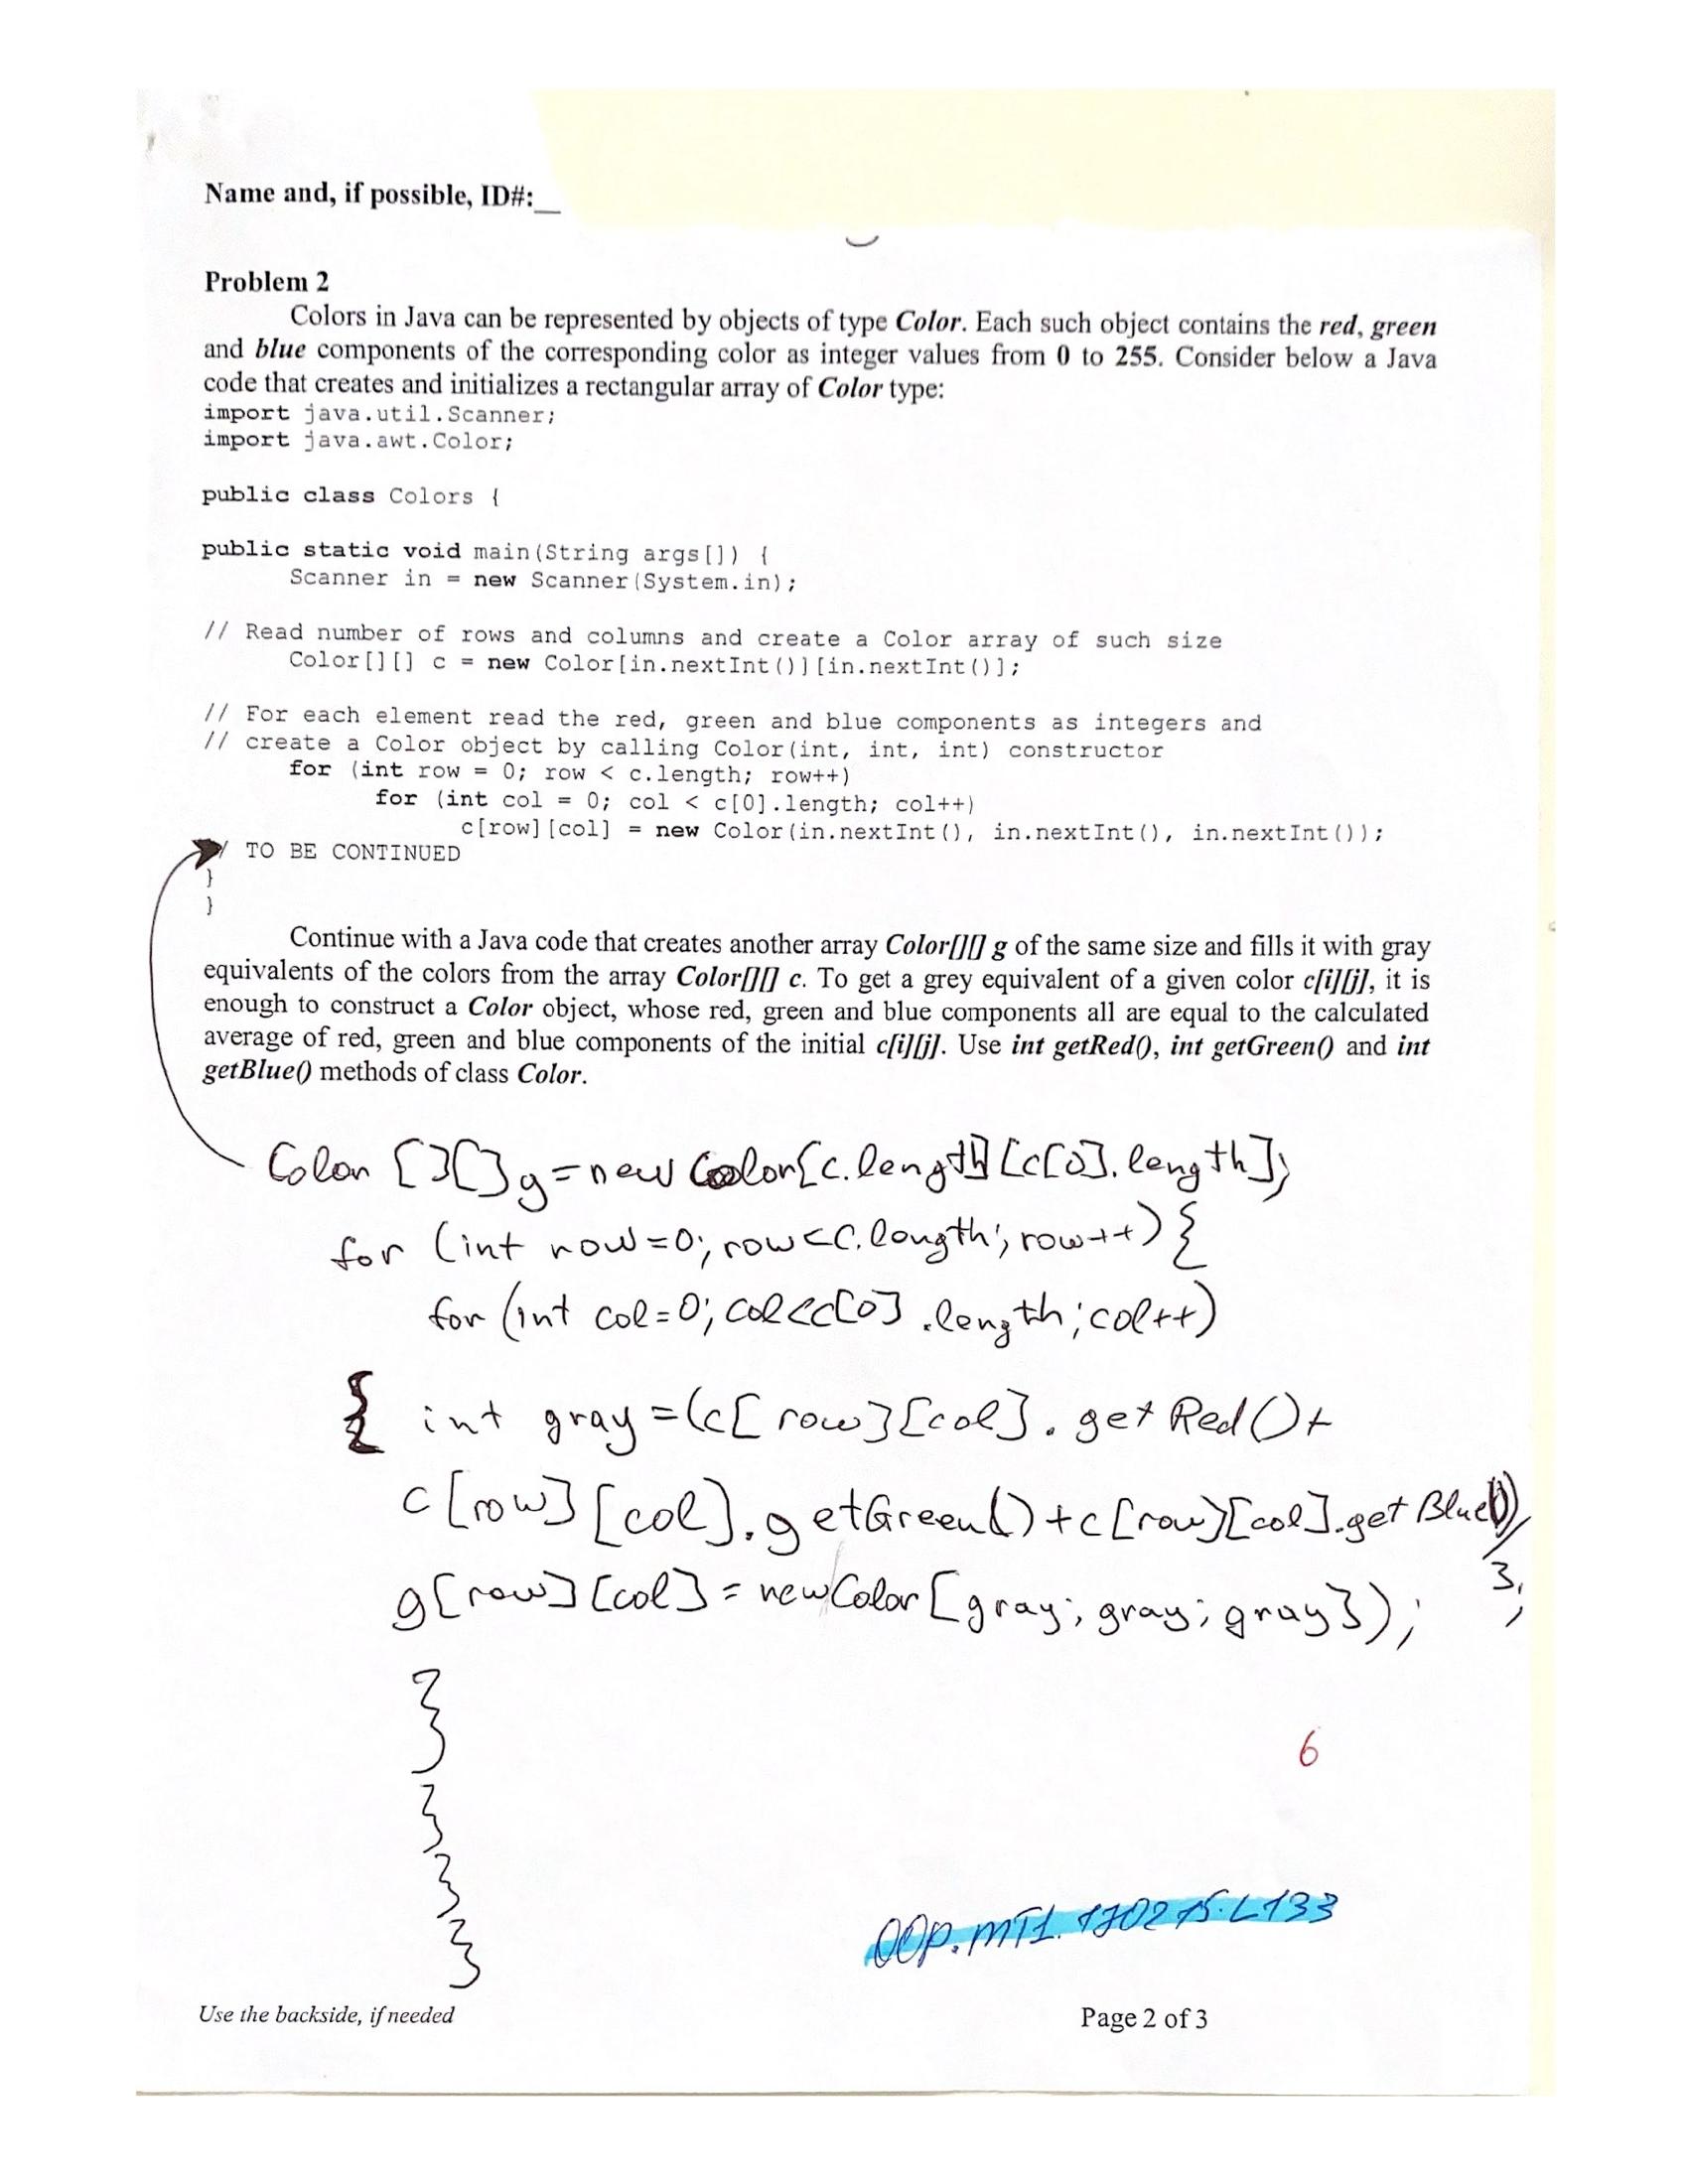 Name and, if possible, ID#:__
Problem 2
Colors in Java can be represented by objects of type Color. Each such object contains the red, green
and blue components of the corresponding color as integer values from 0 to 255. Consider below a Java
code that creates and initializes a rectangular array of Color type:
import java.util.Scanner;
import java.awt.Color;
public class Colors {
public static void main(String args[]) {
Scanner in = new Scanner(System.in);
// Read number of rows and columns and create a Color array of such size
Color[][] c = new Color[in.nextInt()][in.nextInt()];
// For each element read the red, green and blue components as integers and
// create a Color object by calling Color(int, int, int) constructor
for (int row = 0; row < c.length; row++)
for (int col = 0; col < c[0].length; col++)
c[row][col] = new Color(in.nextInt(), in.nextInt(), in.nextInt());
/ TO BE CONTINUED
}
}
Continue with a Java code that creates another array Color[][] g of the same size and fills it with gray
equivalents of the colors from the array Color[][] c. To get a grey equivalent of a given color c[i][j], it is
enough to construct a Color object, whose red, green and blue components all are equal to the calculated
average of red, green and blue components of the initial c[i][j]. Use int getRed(), int getGreen() and int
getBlue() methods of class Color.
Color [][]g=new Color[c.length][c[0].length];
for (int row=0; row<c.length; row++) {
for (int col=0; col<c[0].length; col++)
{ int gray=(c[row][col].getRed()+
c[row][col].getGreen()+c[row][col].getBlue())/
3;
g[row][col]=newColor[gray; gray; gray});
}
}
}
}
6
OOP.MT1.170215.L133
Use the backside, if needed
Page 2 of 3